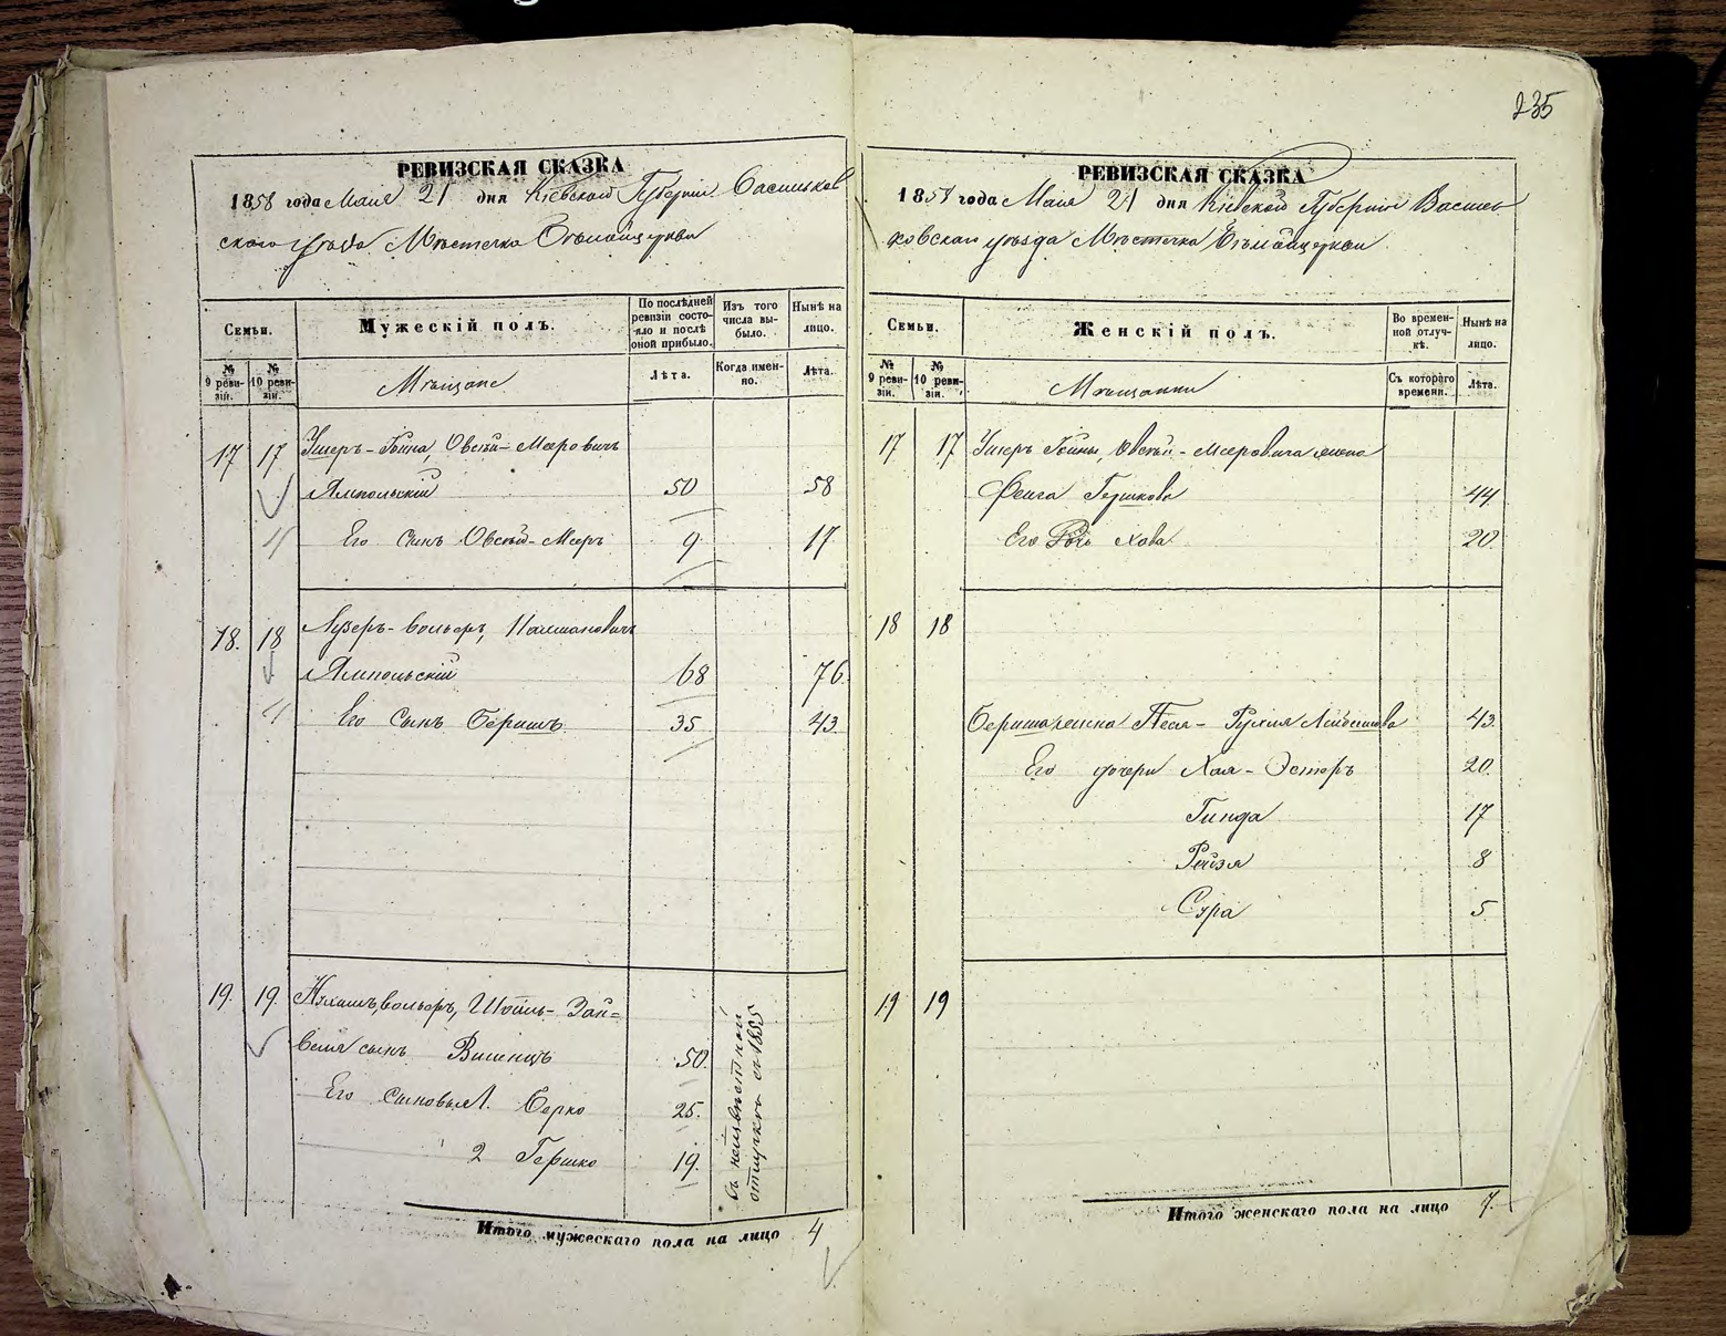 235
РЕВИЗСКАЯ СКАЗКА
1858 года Мая 21 дня Кіевской Губерніи Васильков
скаго уѣзда Мѣстечка Бѣлойцеркви
Семьи.
Мужескій полъ.
По послѣдней ревизіи состо-
яло и послѣ оной прибыло.
Изъ того числа вы-
было.
Нынѣ на лицо.
№ 9 реви-
зіи.
№ 10 реви-
зіи.
Мѣщане
Лѣта.
Когда имен-
но.
Лѣта.
17 17 Ушеръ-Гойна, Овсѣй-Мееровичъ
Ямпольскій 50 58
Его сынъ Овсѣй-Мееръ 9 17
18. 18 Лузеръ-Вольфъ, Калмановичъ
Ямпольскій 68 76.
Его Сынъ Беришъ 35 43.
19. 19. Вольфъ, Шоиль-Зан=
веля сынъ 50.
Его сыновья 1. Берко 25.
2 Гершко 19.
въ неизвѣстной
отлучкѣ съ 1855
Итого мужескаго пола на лицо 4
РЕВИЗСКАЯ СКАЗКА
1858 года Мая 21 дня Кіевской Губерніи Василь
ковскаго уѣзда Мѣстечка Бѣлойцеркви
Семьи.
Женскій полъ.
Во времен-
ной отлуч-
кѣ.
Нынѣ на лицо.
№ 9 реви-
зіи.
№ 10 реви-
зіи.
Мѣщанки
Съ котораго времени.
Лѣта.
17 17 Ушеръ Гойны, Овсѣй-Мееровича жена
Фейга Гершкова 44
Его дочь Хава 20.
18 18
Бериша жена Песя-Рухля Лейбишова 43.
Его дочери Хая-Эстеръ 20.
Гинда 17
Рейзя 8
Сура 5.
19 19
Итого женскаго пола на лицо 7.